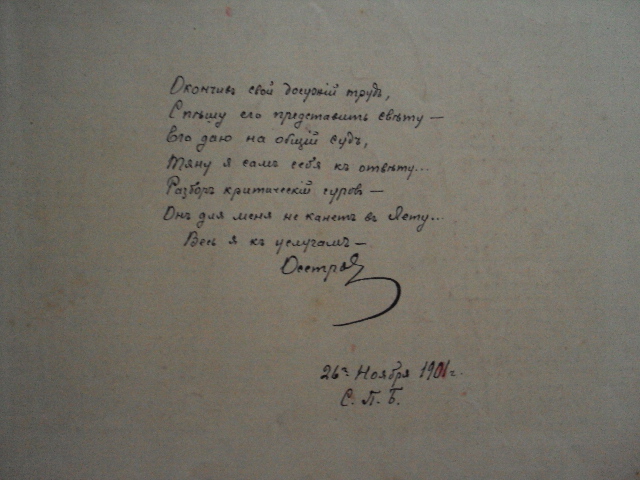 Окончивъ свой досужій трудъ,
Спѣшу его представить свѣту —
Его даю на общій судъ,
Тяну я самъ себя къ отвѣту...
Разборъ критическій суровъ —
Онъ для меня не канетъ въ Лету...
Весь я къ услугамъ —
26го Ноября 1901 г.
С. П. Б.